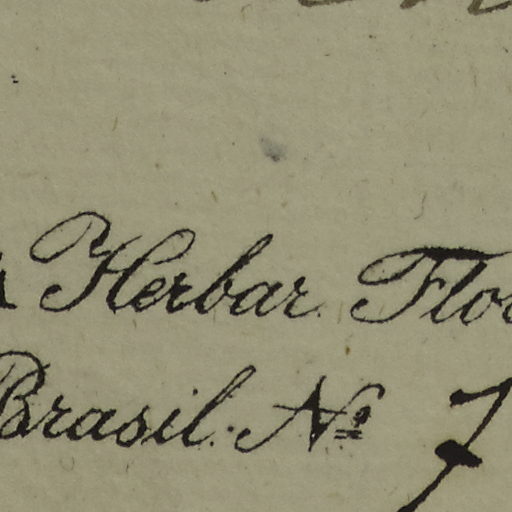 Herbar. Flor
Brasil. No 7